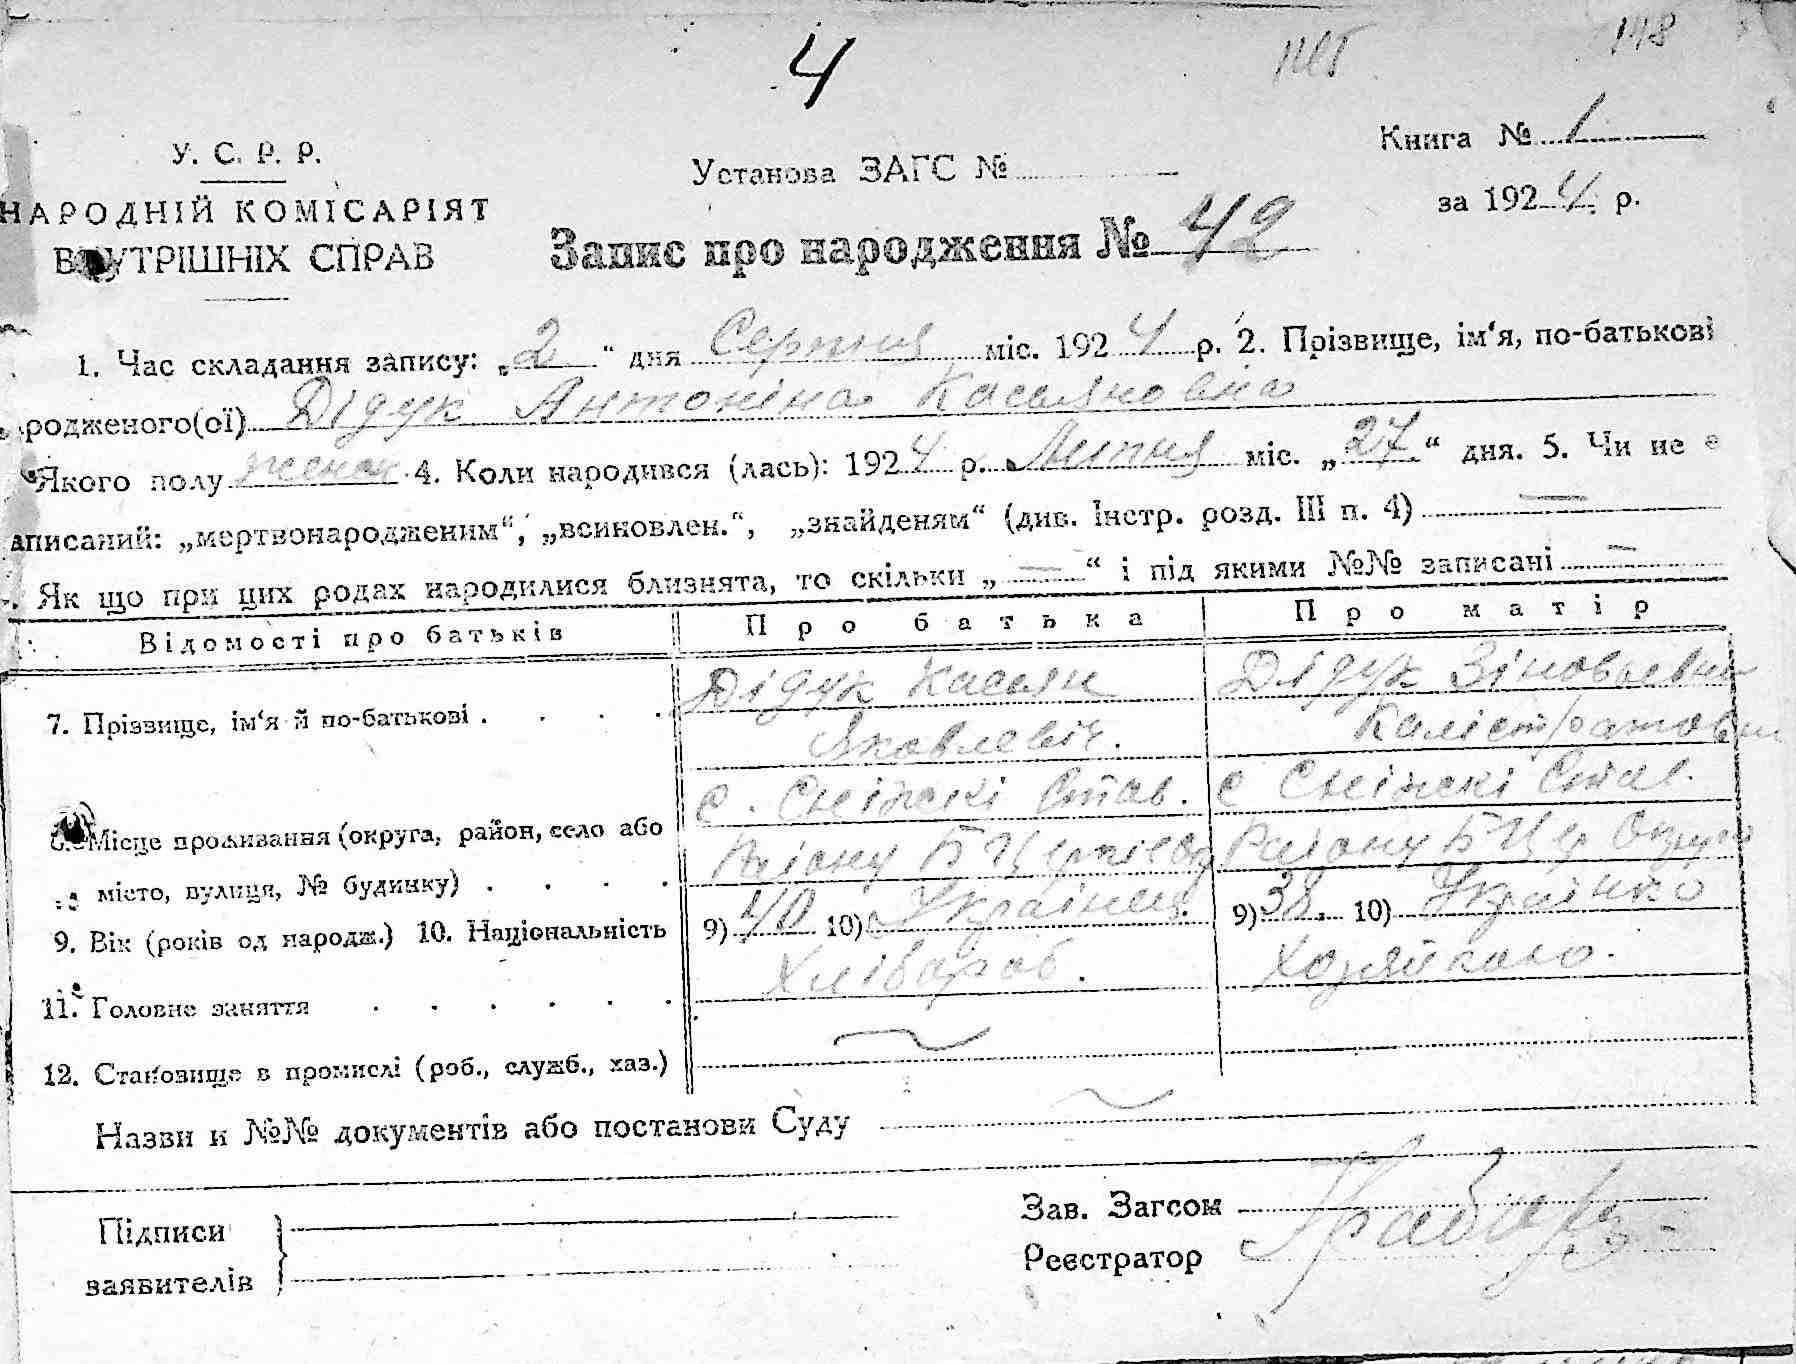 4
148
У. С. Р. Р.
НАРОДНІЙ КОМІСАРІЯТ
ВНУТРІШНІХ СПРАВ
Установа ЗАГС №
Книга № 1
за 1924 р.
Запис про народження № 42
1. Час складання запису: „2“ дня Серпня міс. 1924 р. 2. Прізвище, ім‘я, по-батькові
родженого(ої) Дідук Антоніна Касьяновна
Якого полу женск 4. Коли народився (лась): 1924 р. Липня міс. „27“ дня. 5. Чи не є
аписаний: „мертвонародженим“, „всиновлен.“, „знайденям“ (див. Інстр. розд. III п. 4) —
Як що при цих родах народилися близнята, то скільки „—“ і під якими №№ записані —
Відомості про батьків Про батька Про матір
7. Прізвище, ім‘я й по-батькові . . . . Дідук Касьян Яковлевіч. Дідук Зіновьевна Калістратовна
Місце проживання (округа, район, село або с. Снінскі Став. с Снінскі Став.
місто, вулиця, № будинку) . . . . Району Б Церкіов Району Б Цер Округи
9. Вік (років од народж.) 10. Національність 9) 40 10) Українец. 9) 38. 10) Українка
11. Головне заняття . . . . . . Хлібароб. Хозяйкаю.
12. Становище в промислі (роб., служб., хаз.)
Назви и №№ документів або постанови Суду
Підписи
заявителів
Зав. Загсом
Реєстратор